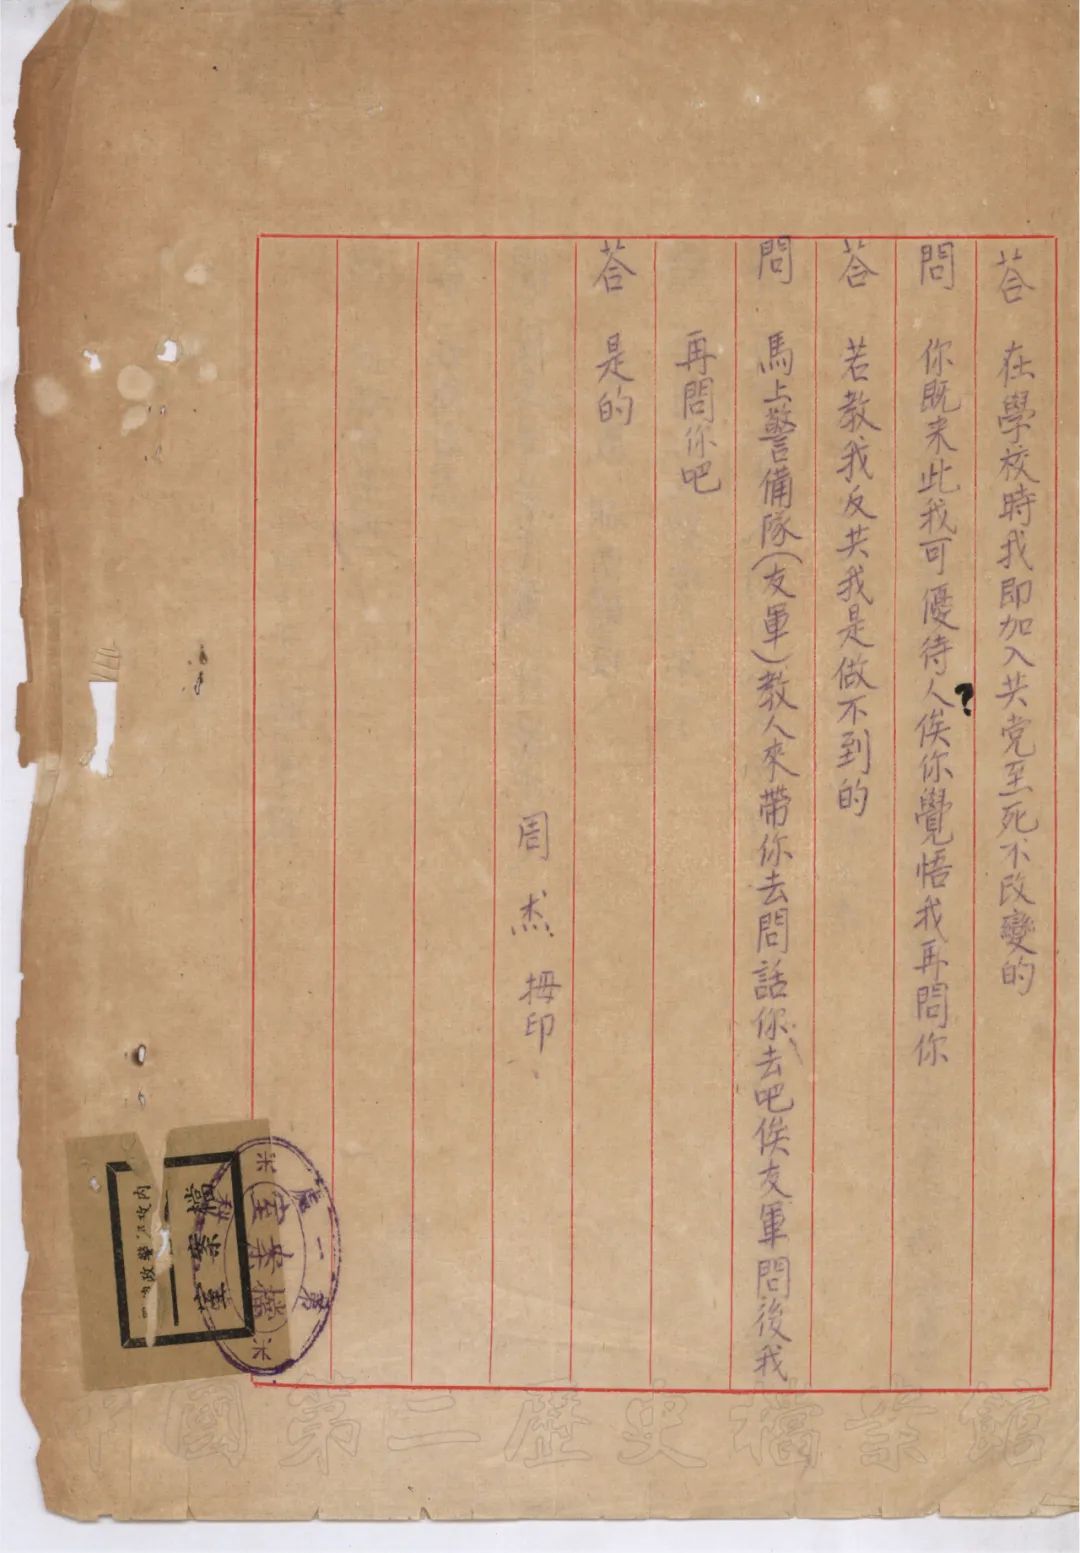 答 在學校時我即加入共党至死不改變的
問 你既来此我可優待人俟你覺悟我再問你
?
答 若教我反共我是做不到的
問 馬上警備隊(友軍)教人來帶你去問話你去吧俟友軍問後我
再問你吧
答 是的
周杰 拇印
檔案室
檔案室
中國第二歷史檔案館